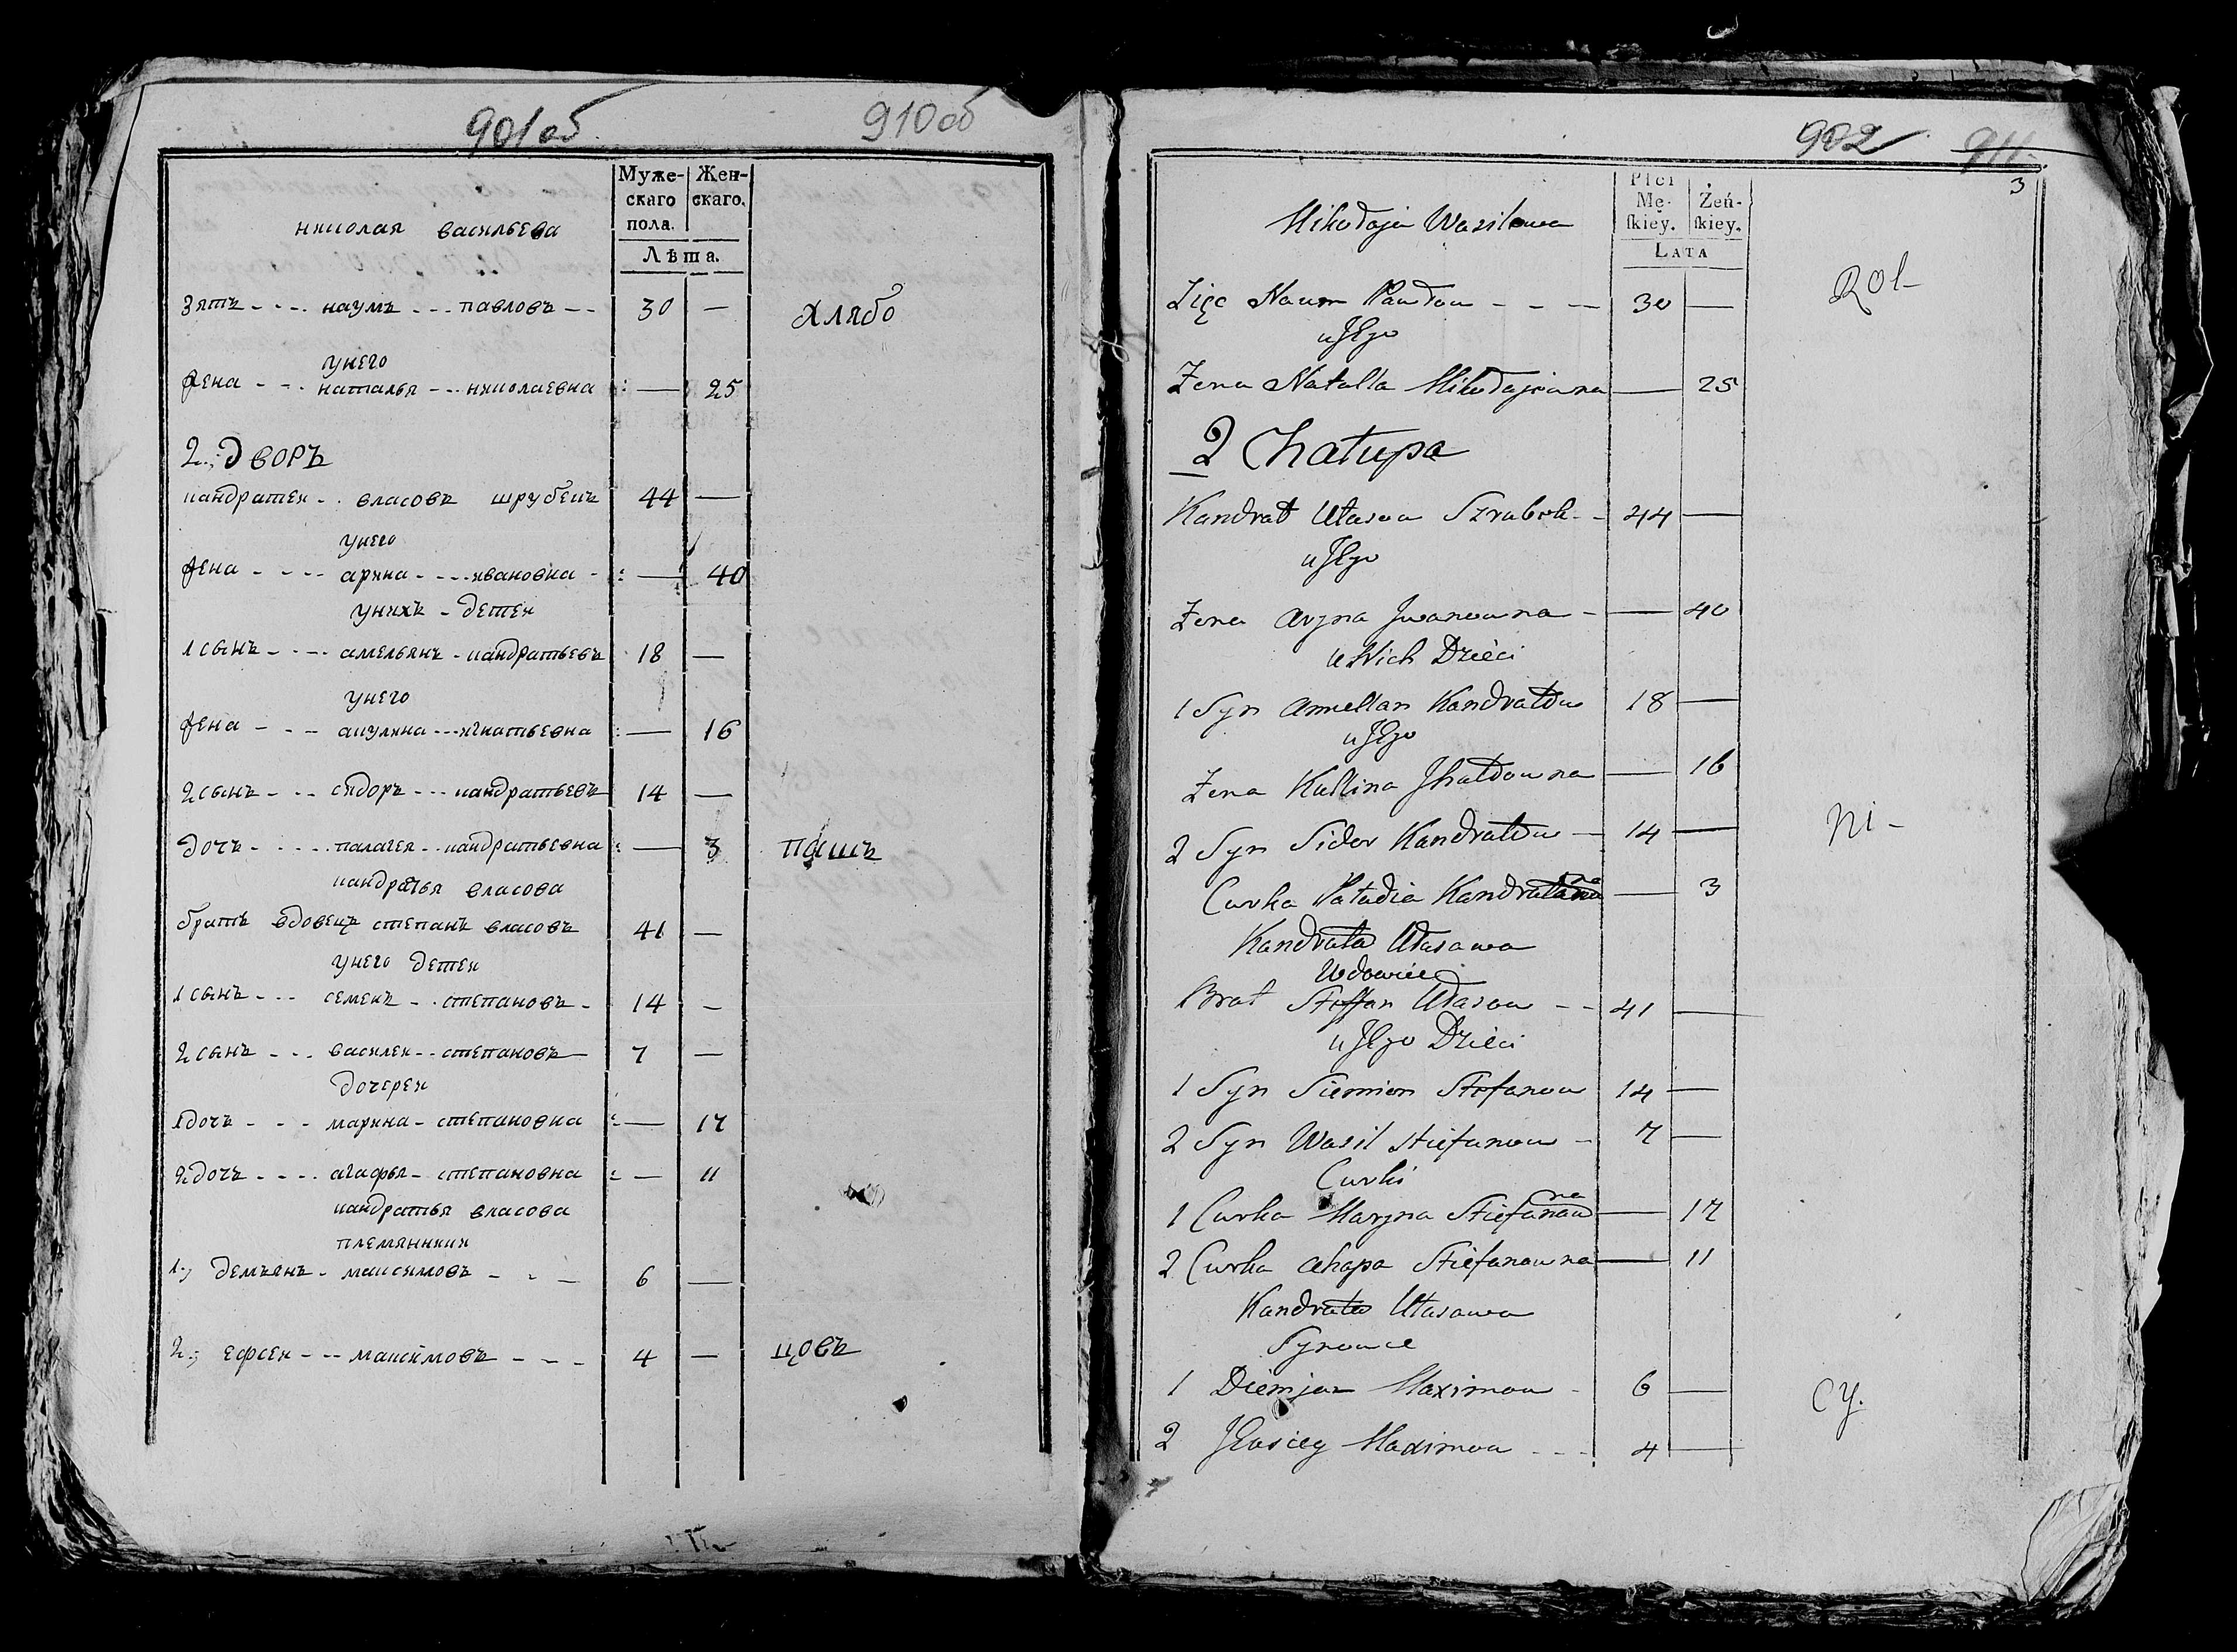 901об 910об
Муже-
скаго
пола.
Жен-
скаго.
Лѣта.
николая васильева
зять - - - наумъ - - - павловъ - - 30 — хлябо
унего
жена - - - наталья - - николаевна : — 25
2.; дворъ
кандратеи - . власовъ шрубекъ 44 —
унего
жена - - - - арина - - - ивановна - : — 40
унихъ - детеи
1 сынъ - - - амельянъ - кандратьевъ 18 —
унего
жена - - - акулина - - - игнатьевна : — 16
2 сынъ - - - сидоръ - - - кандратьевъ 14 —
дочь - - - - - палагея - - кандратьевна : — 3 пашъ
кандратья власова
братъ вдовецъ степанъ власовъ 41 —
унего детеи
1 сынъ - - - семенъ - . степановъ - 14 —
2 сынъ - - - василеи - - степановъ — 7 —
дочереи
1 дочь - - - марина - степановна : — 17
2 дочь - - - - агафья - степановна : — 11
кандратья власова
племянники
1.; демьянъ - максимовъ - - — 6 —
2.; ефсеи - - - максимовъ - - - 4 — цовъ
902 911
3
Płci
Mę-
skiey.
Żeń-
skiey.
Lata
Mikołaja Wasilowa
Zięc Naum Pawłow - - — 30 — Rol-
u Jego
Żona Natalla Mikołajowna — 25
2 Chałupa
Kandrat Ułasow Szrubek - - 44 —
u Jego
Żona Aryna Jwanowna - — 40
u Nich Dzieci
1 Syn Amellan Kandratow 18 —
u Jego
Żona Kullina Jhnatowna — 16
2 Syn Sidor Kandratow — 14 — Ni-
Curka Paładia Kandratowna — 3
Kandrata Ułasawa
Wdowiec
Brat Steffan Ułasow - - 41 —
u Jego Dzieci
1 Syn Siemion Stefanow 14 —
2 Syn Wasil Stiefanow - 7 —
Curki
1 Curka Maryna Stiefanowna — 17
2 Curka Ahapa Stiefanowna — 11
Kandrata Ułasawa
Synowce
1 Diemjan Maximow - 6 — cy.
2 Jewsiey Maximow - - - 4 —